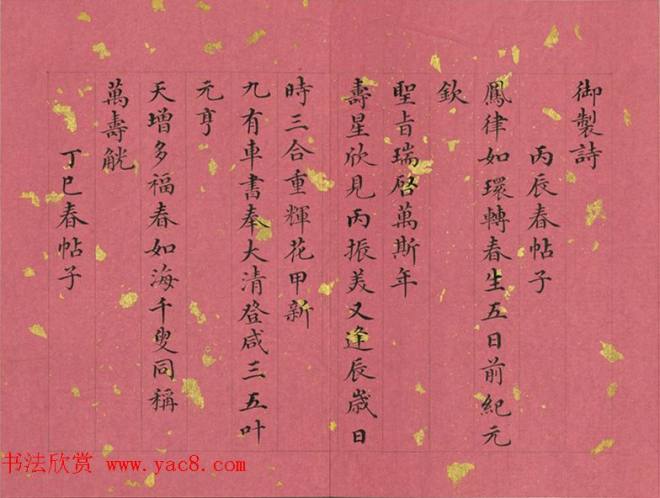 御製詩
丙辰春帖子
鳳律如環轉春生五日前紀元
欽
聖旨瑞啓萬斯年
壽星欣見丙振美又逢辰歳日
時三合重輝花甲新
九有車書奉大清登咸三五叶
元亨
天增多福春如海千叟同稱
萬壽觥
丁巳春帖子
书法欣赏 www.yac8.com